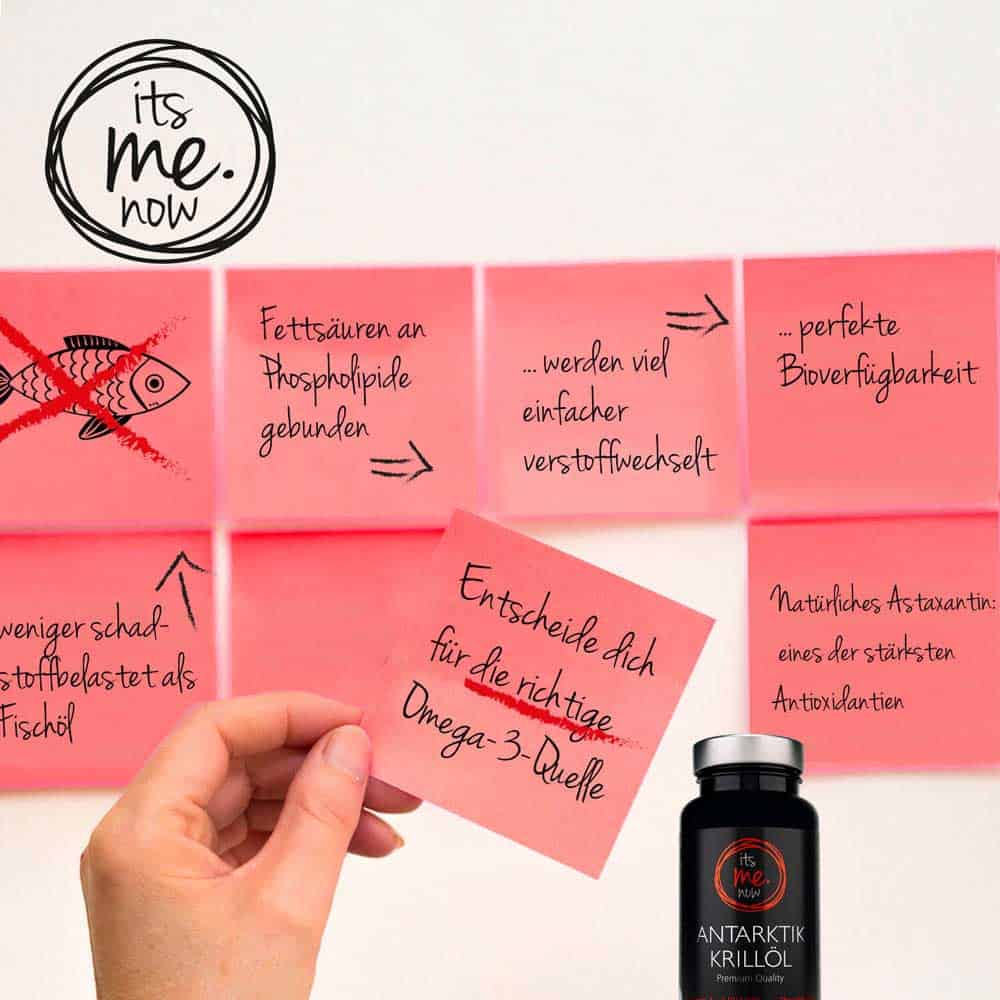 its
me.
now
Fettsäuren an
Phospholipide
gebunden
... werden viel
einfacher
verstoffwechselt
... perfekte
Bioverfügbarkeit
weniger schad-
stoffbelastet als
Fischöl
Entscheide dich
für die richtige
Omega-3-Quelle
Natürliches Astaxantin:
eines der stärksten
Antioxidantien
its
me.
now
ANTARKTIK
KRILLÖL
Premium Quality